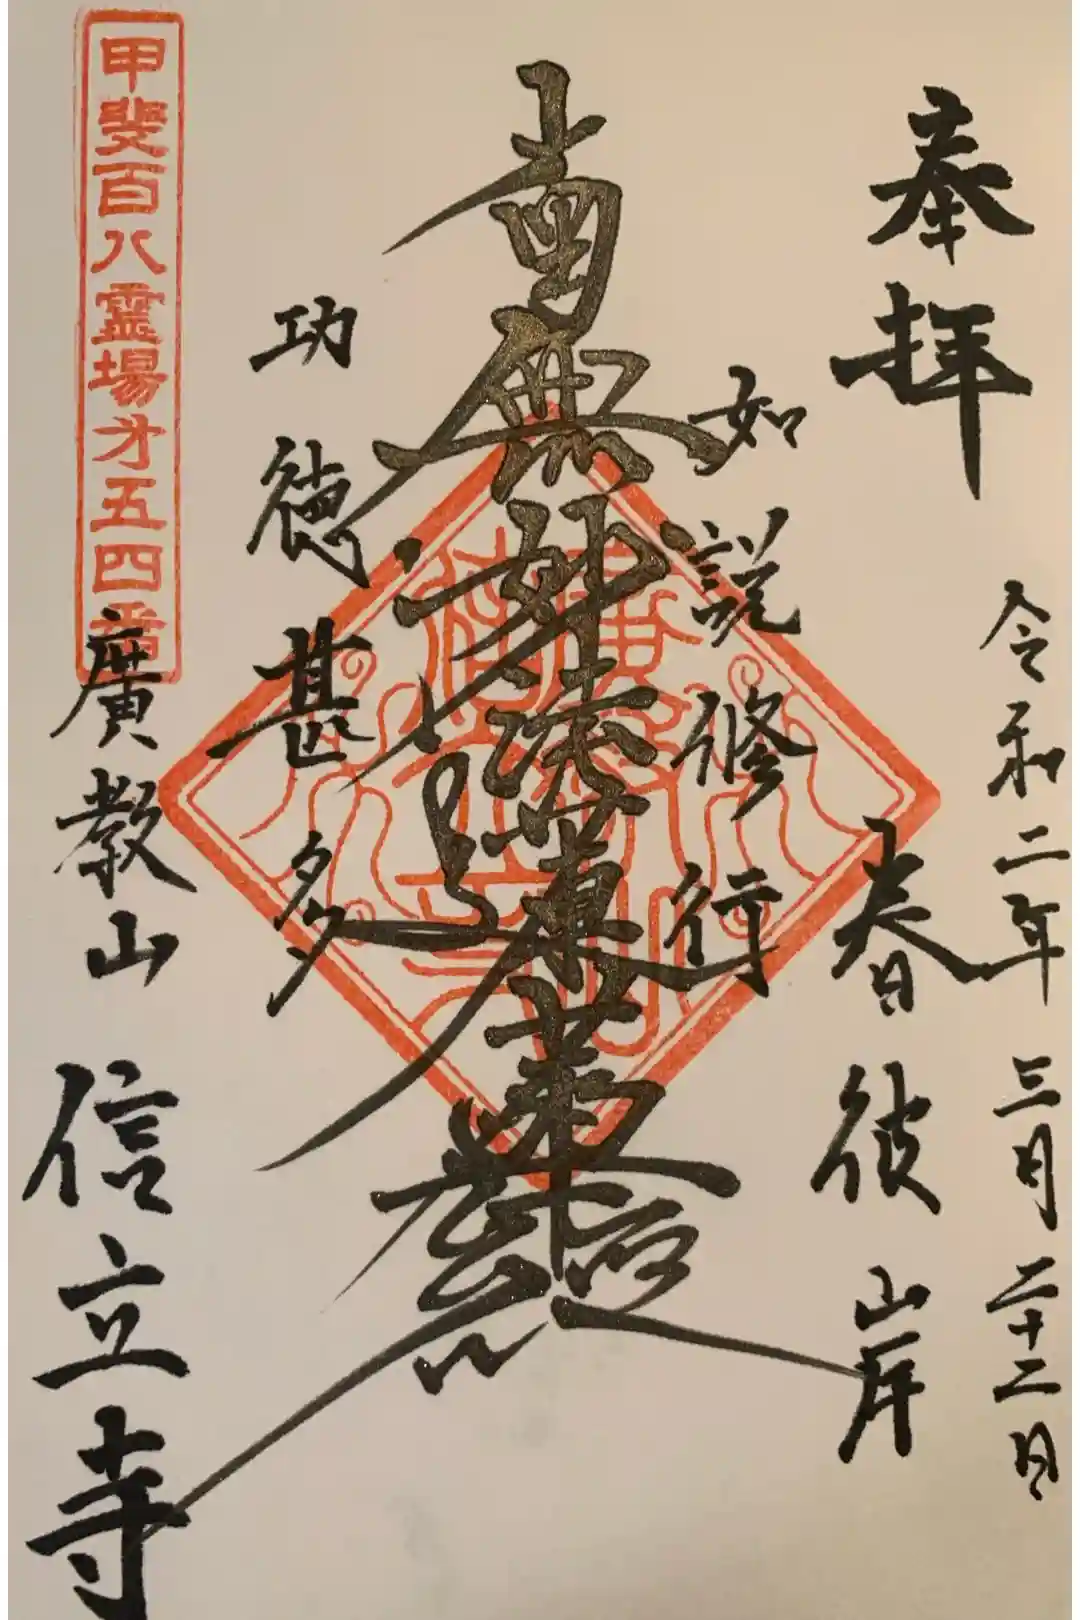 奉拝
令和二年三月二十二日
春彼岸
如説修行
南無妙法蓮華経
功徳甚多
甲斐百八霊場才五四番
廣教山
信立寺